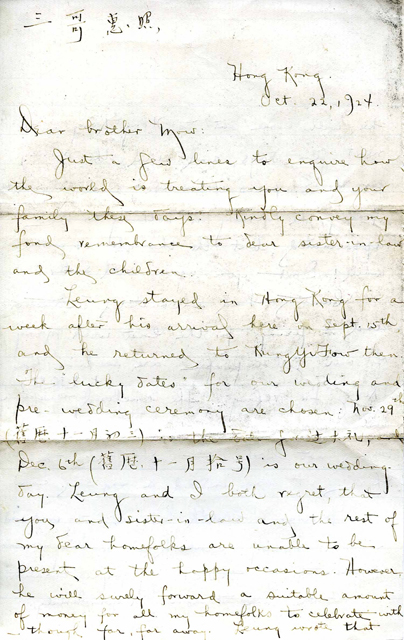 三哥惠照,
Hong Kong.
Oct. 22, 1924.
Dear brother Mow:
Just a few lines to enquire how
the world is treating you and your
family these days. Kindly convey my
fond remembrance to dear sister-in-law
and the children.
Leung stayed in Hong Kong for a
week after his arrival here on Sept. 15th
and he returned to KungYiFow then.
The lucky dates for our wedding and
pre-wedding ceremony are chosen: Nov. 29th
(舊曆十一月初三) is the
Dec. 6th (舊曆十一月拾号) is our wedding
day. Leung and I both regret, that
you and sister-in-law and the rest of
my dear homefolks are unable to be
present at the happy occasions. However,
he will surely forward a suitable amount
of money for all my homefolks to celebrate with
though far, far away. Leung wrote that